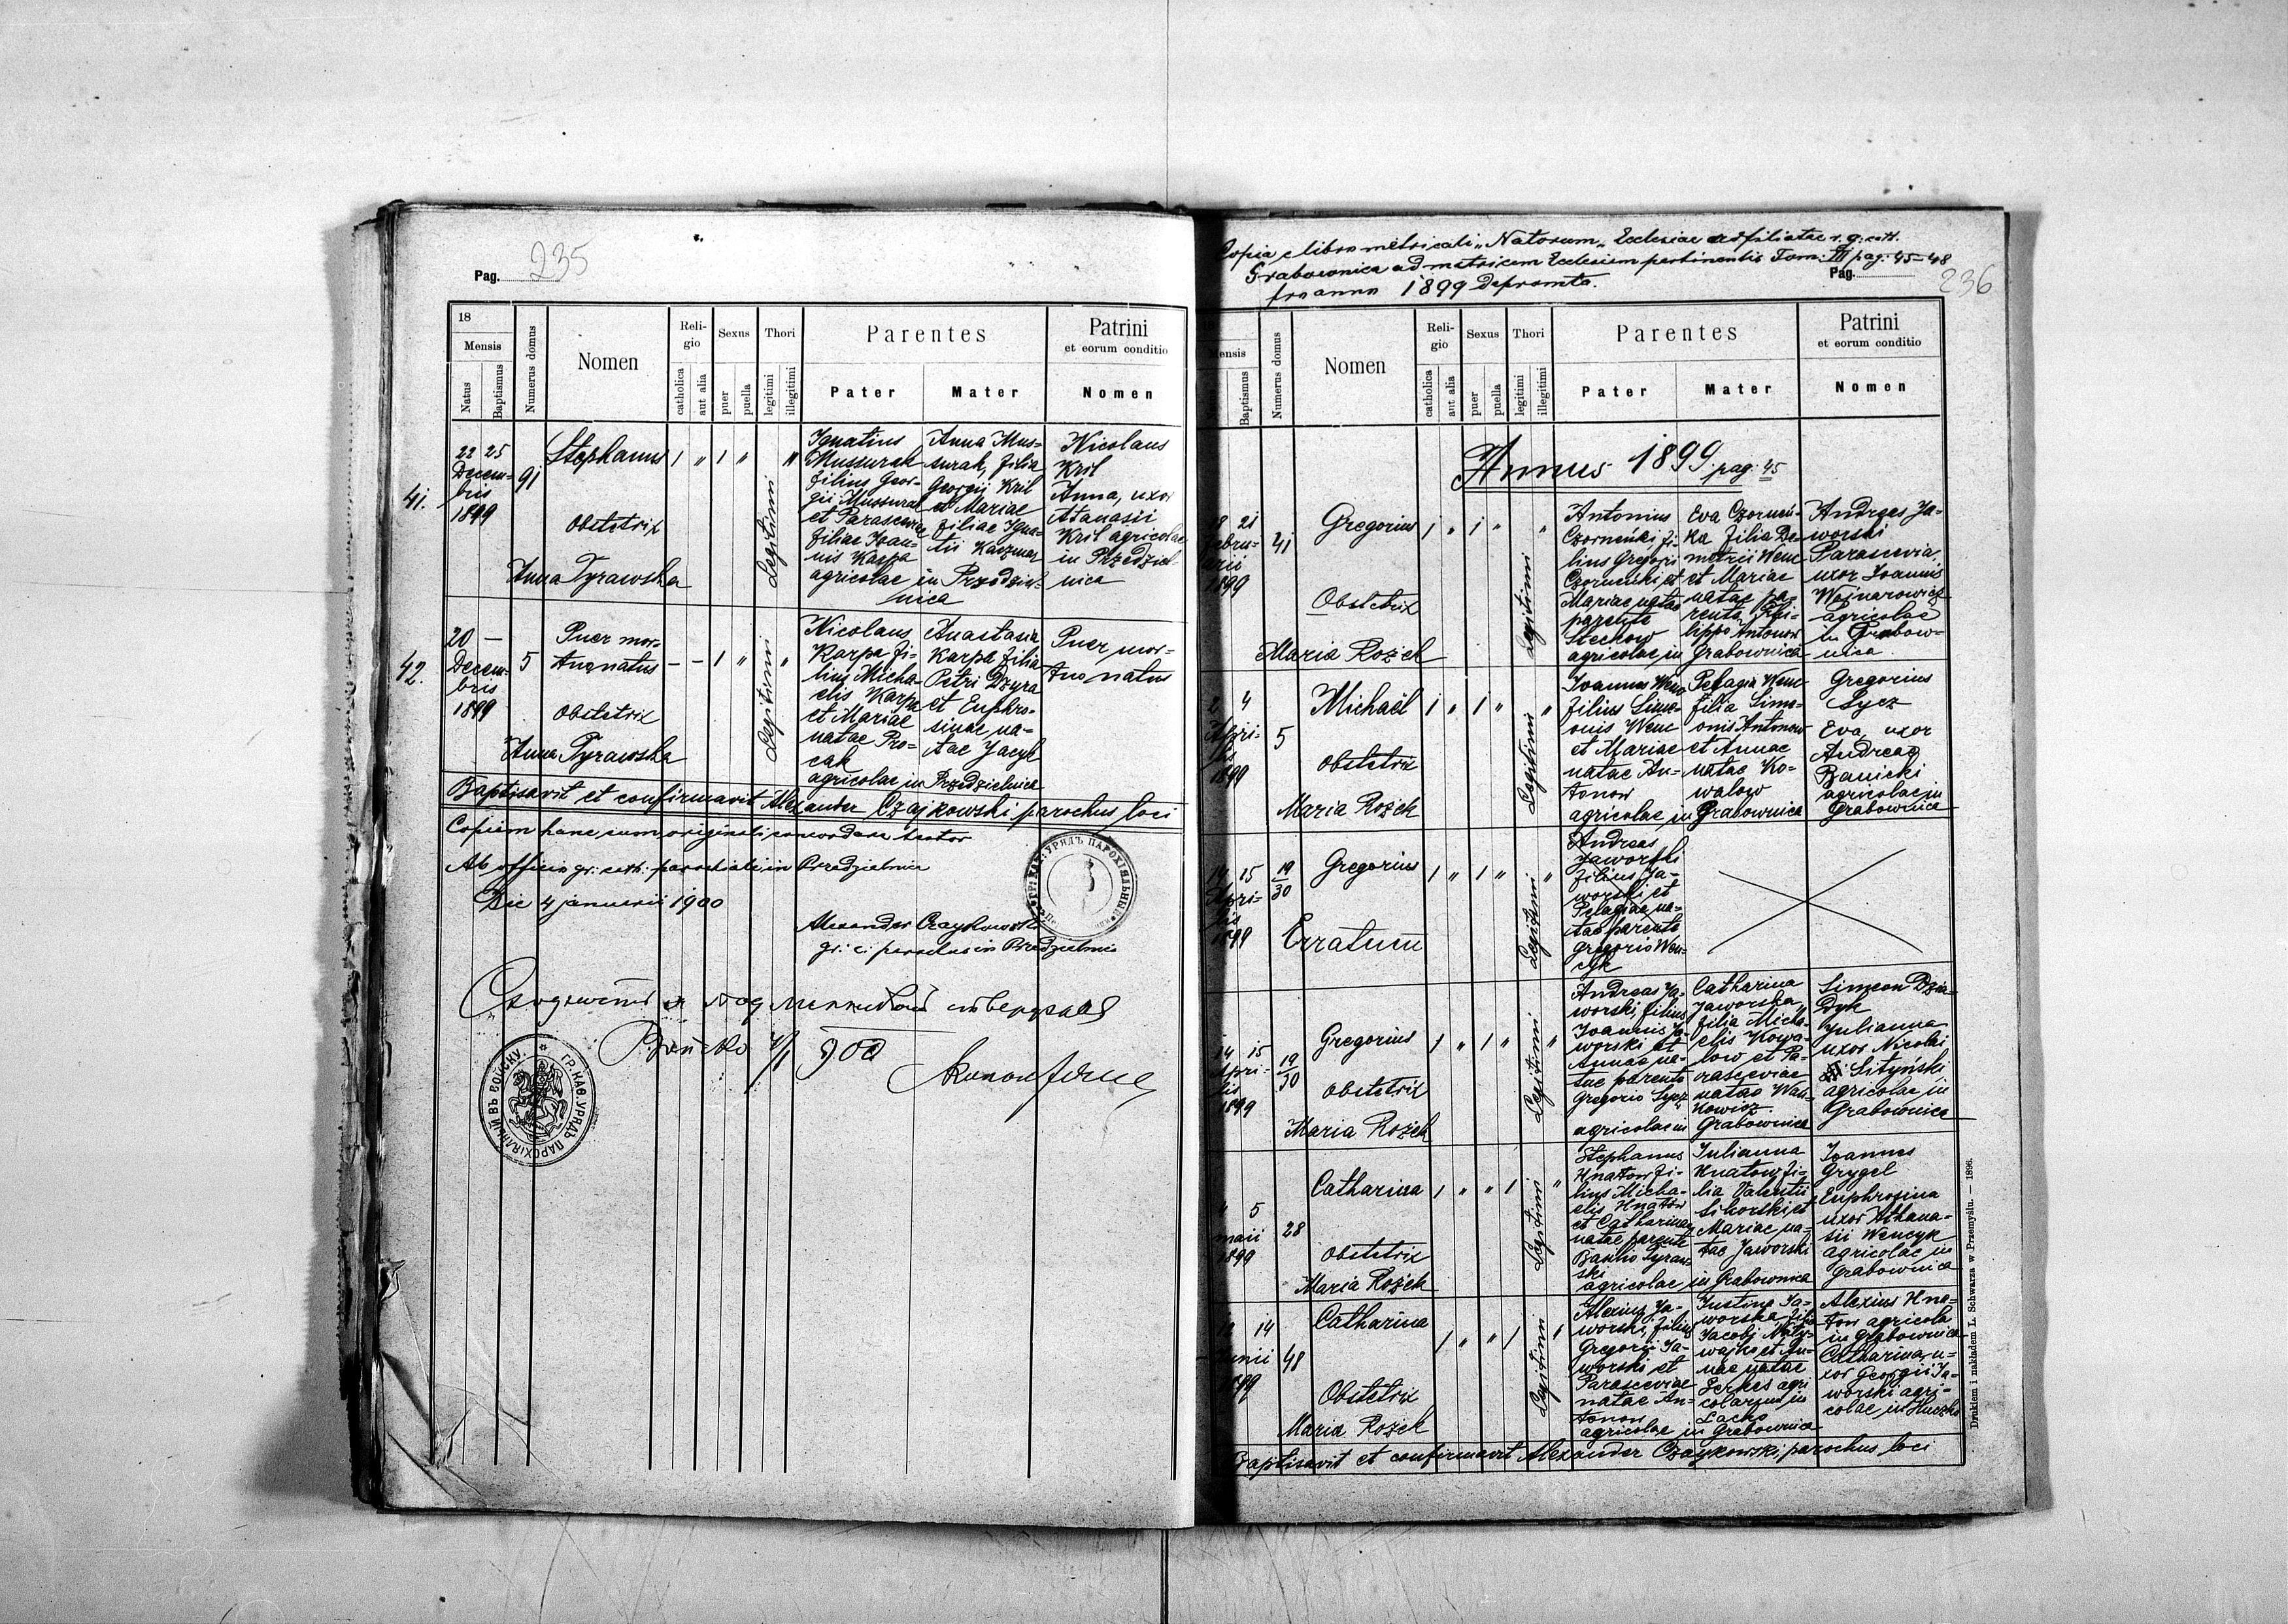 Pag. 235
18
Mensis
Natus
Baptismus
Numerus domus
Nomen
Reli-
gio
catholica
aut alia
Sexus
puer
puella
Thori
legitimi
illegitimi
Parentes
Pater
Mater
Patrini
et eorum conditio
Nomen
41.
22 25
Decem-
bris
1899
91
Stephanus
1 " 1 " "
Obstetrix
Anna Tyrawska
Legitimi
Ignatius
Mussurak
filius Geor-
gii Mussurak
et Parasceviae
filiae Ioan-
nis Karpa
agricolae in Przedziel-
nica
Anna Mus-
surak, filia
Georgii Kril
et Mariae
filiae Igna-
tii Kaczmar
Nicolaus
Kril
Anna, uxor
Atanasii
Kril agricolae
in Przedziel-
nica
42.
20 —
Decem-
bris
1899
5
Puer mor-
tuo natus
- - 1 " "
Obstetrix
Anna Tyrawska
Legitimi
Nicolaus
Karpa fi-
lius Micha-
elis Karpa
et Mariae
natae Pro-
cak
agricolae in Przedzielnica
Anastasia
Karpa filia
Petri Dzyra
et Euphro-
sinae na-
tae Jacyk
Puer mor-
tuo natus
Baptisavit et confirmavit Alexander Czajkowski parochus loci
Copiam hanc cum originali concordare testor
Ab officio gr: cath: parochiali in Przedzielnica
Die 4 januarii 1900
Alexander Czaykowski
gr: c: parochus in Przedzielnica
ГР: КАТ: УРЯДЪ ПАРОХІЯЛЬНЫЙ
900
ГР. КАѲ. УРЯДЪ ПАРОХІЯЛЬНЫЙ ВЪ ВОЙСКУ.
Copia e libro metricali "Natorum" Ecclesiae adfiliatae r. g: cath.
Grabownica ad matricem Ecclesiam pertinentis Tom: III pag: 45-48
pro anno 1899 depromta.
Pag. 236
Mensis
Baptismus
Numerus domus
Nomen
Reli-
gio
catholica
aut alia
Sexus
puer
puella
Thori
legitimi
illegitimi
Parentes
Pater
Mater
Patrini
et eorum conditio
Nomen
Annus 1899 pag: 45
18 21
Febru-
arii
1899
41
Gregorius
1 " 1 " "
Obstetrix
Maria Rożek
Legitimi
Antonius
Czorneński, fi-
lius Gregorii
Czorneński et
Mariae natae
parente
Stechow
agricolae in Grabownica
Eva Czorneń-
ka filia De-
metrii Wenc
et Mariae
natae pa-
rente Phi-
lippo Antonow
Andreas Ja-
worski
Parascevia,
uxor Ioannis
Wojnarowicz
agricolae
in Grabow-
nica
2 4
Apri-
lis
1899
5
Michaël
1 " 1 " "
Obstetrix
Maria Rożek
Legitimi
Ioannes Wenc
filius Sime-
onis Wenc
et Mariae
natae An-
tonow
agricolae in Grabownica
Pelagia Wenc
filia Sime-
onis Antonow
et Annae
natae Ko-
walow
Gregorius
Sycz
Eva, uxor
Andreae
Banicki
agricolae in
Grabownica
14 15
Apri-
lis
1899
19
30
Gregorius
1 " 1 " "
Erratum
Legitimi
Andreas
Jaworski
filius Ja-
worski et
Pelagiae na-
tae parente
Gregorio Wen-
cyk
14 15
Apri-
lis
1899
19
30
Gregorius
1 " 1 " "
Obstetrix
Maria Rożek
Legitimi
Andreas Ja-
worski, filius
Ioannis Ja-
worski et
Annae na-
tae parente
Gregorio Sycz
agricolae in Grabownica
Catharina
Jaworska,
filia Micha-
elis Kowa-
low et Pa-
rasceviae
natae Wań-
kowicz
Simeon Dzia-
dyk
Julianna
uxor Nicolai
Sityński
agricolae in
Grabownica
4 5
maii
1899
28
Catharina
1 " " 1 "
Obstetrix
Maria Rożek
Legitimi
Stephanus
Hnatow fi-
lius Micha-
elis Hnatow
et Catharinae
natae parente
Banko Tyraw-
ski
agricolae in Grabownica
Iulianna
Hnatow, fi-
lia Valentii
Sikorski et
Mariae na-
tae Jaworski
Ioannes
Grygel
Euphrosina
uxor Athana-
sii Wencyk
agricolae in
Grabownica
12 14
Junii
1899
48
Catharina
1 " " 1 "
Obstetrix
Maria Rożek
Legitimi
Alexius Ja-
worski, filius
Gregorii Ja-
worski et
Parasceviae
natae An-
tonow
agricolae in Grabownica
Justina Ja-
worska, filia
Jacobi Maty-
wajko et An-
nae natae
Serkes agri
colarum in
Lacko
Alexius Hna-
tow agricola
in Grabownica
Catharina, u-
xor Georgii Ja-
worski agri-
colae in Huczko
Baptisavit et confirmavit Alexander Czaykowski, parochus loci
Drukiem i nakładem L. Schwarza w Przemyślu. — 1896.